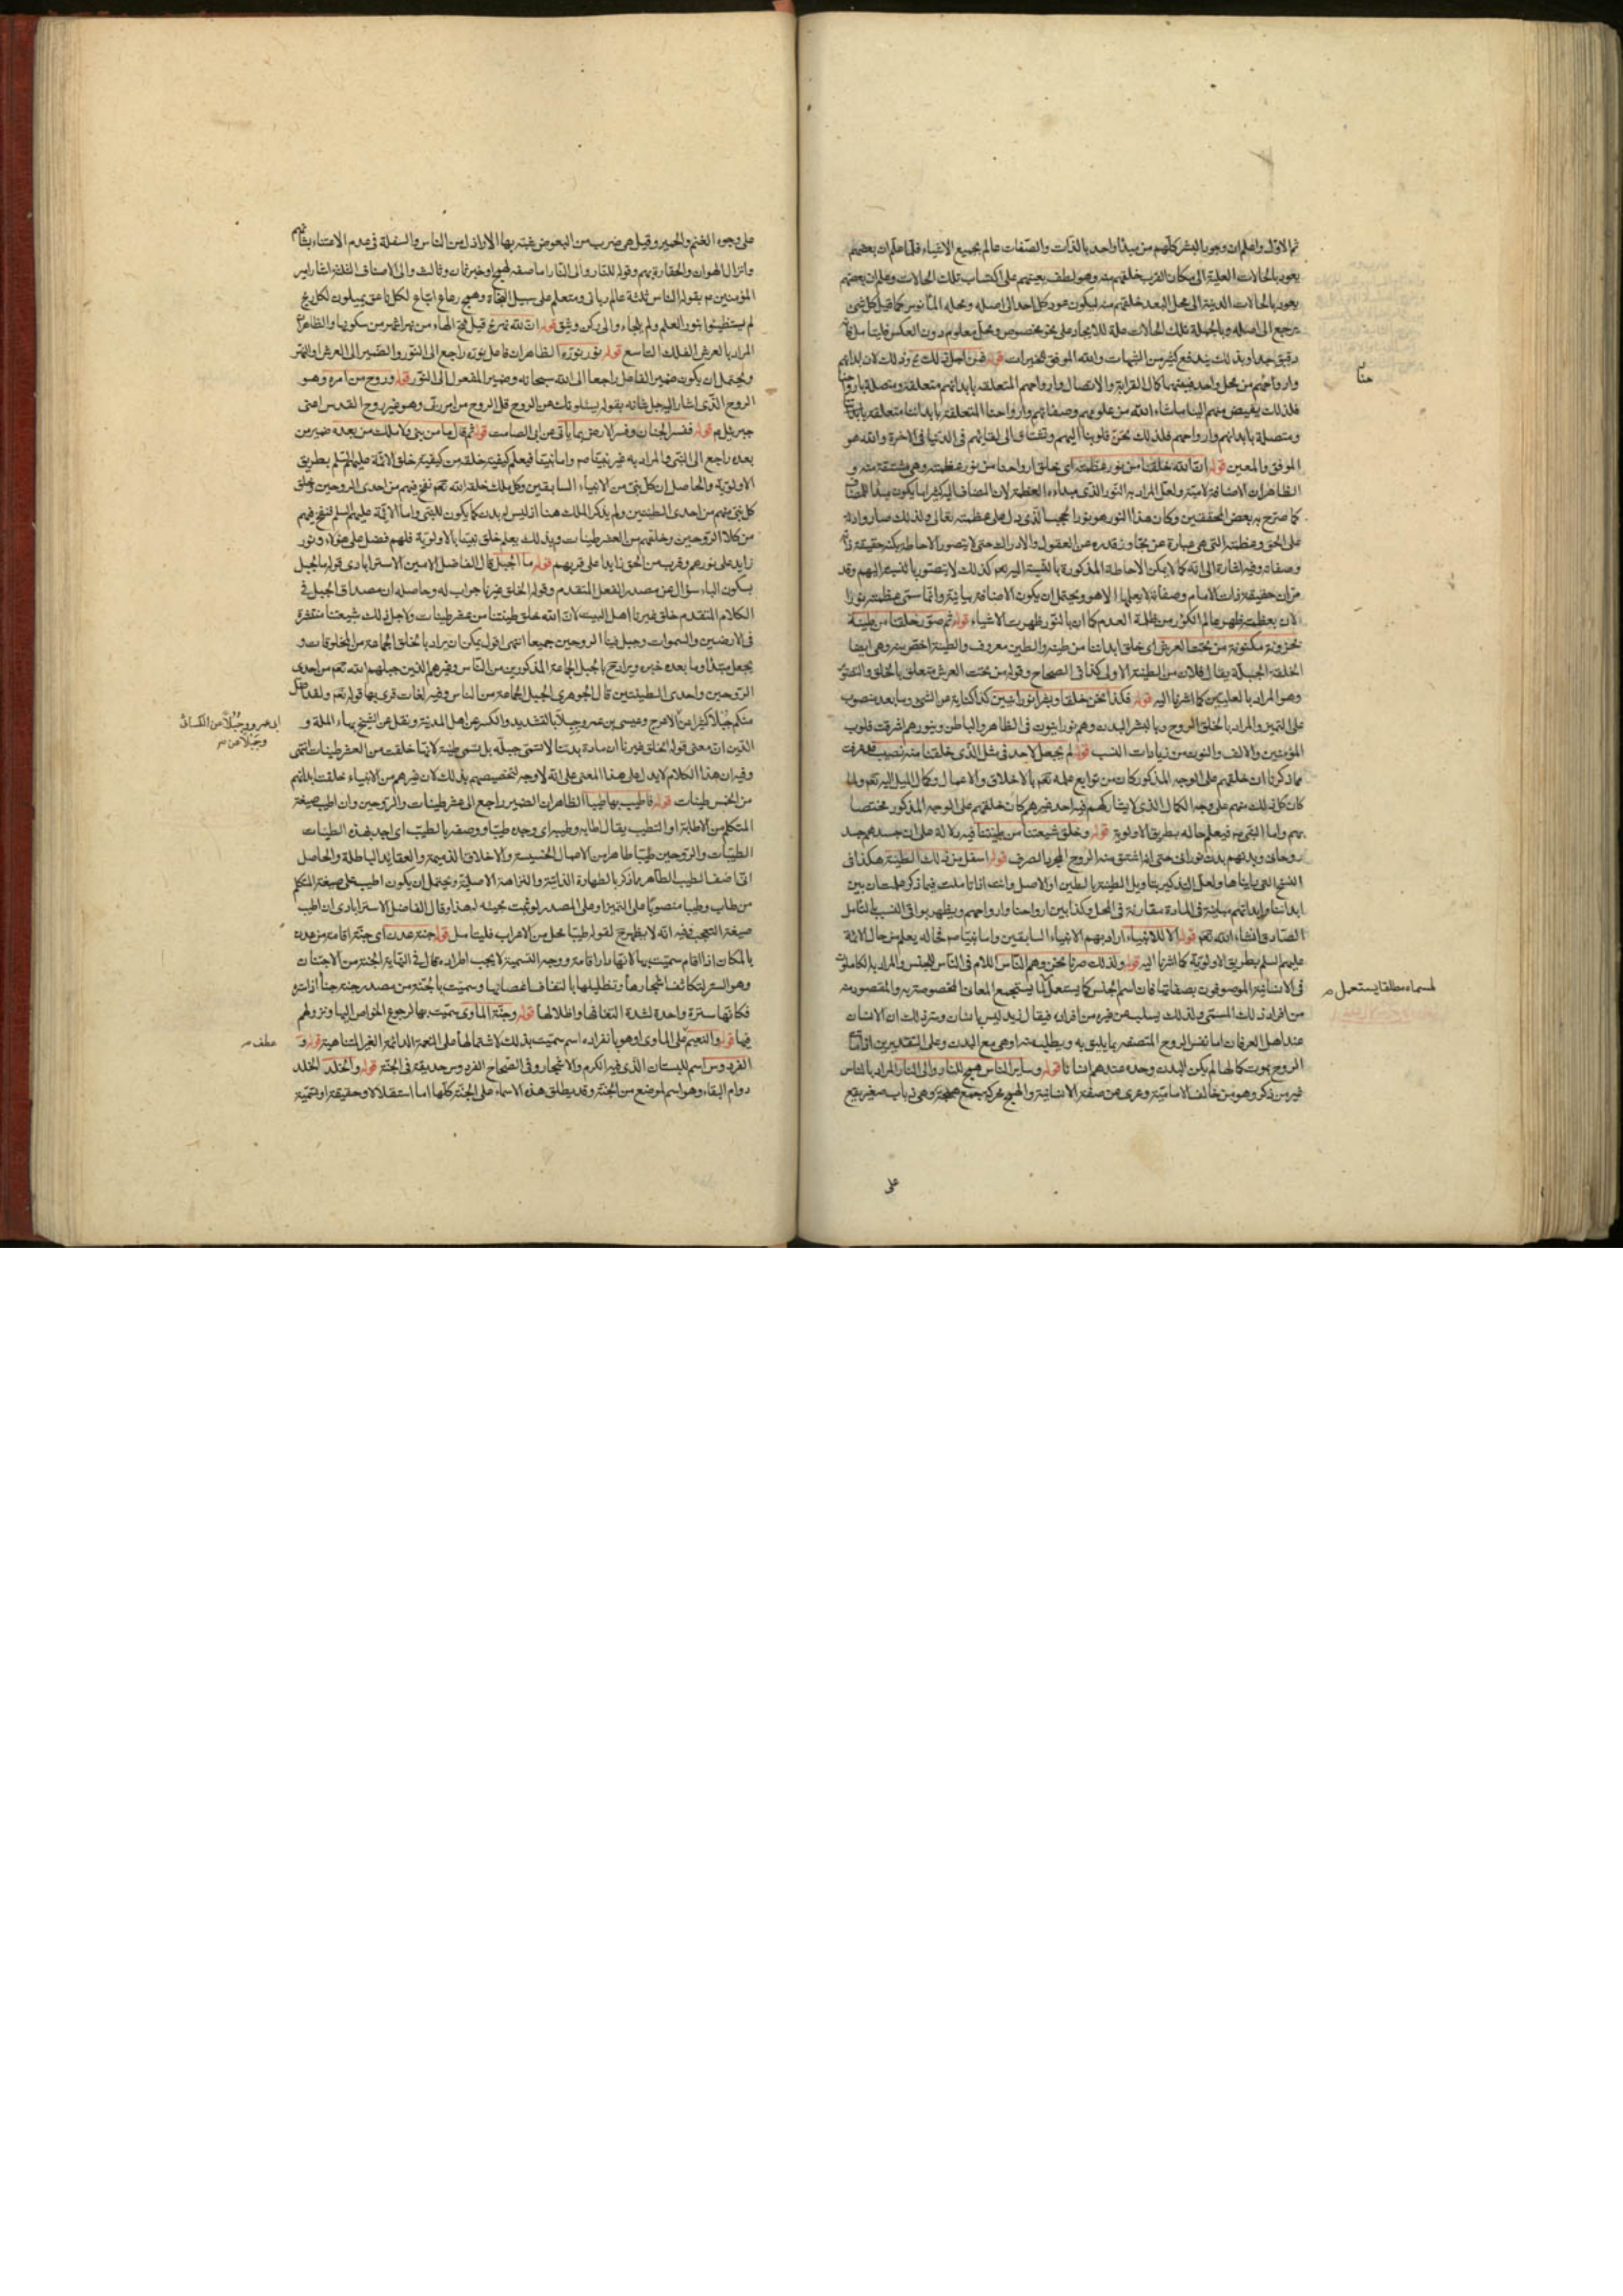 ثم الاول واعلم ان وجود البشر كلهم من مبدأ واحد بالذات والصفات عالم بجميع الاشياء فلما علم ان بعضهم
يعود بالحالات العلية الى مكان القرب خلقهم منه وهو لطف يعينهم على اكتساب تلك الحالات وعلم ان بعضهم
يعود بالحالات الدنية الى محل البعد خلقهم منه ليكون عود كل احد الى اصله ومحله المأنوس كما قيل كل شئ
يرجع الى اصله وبالجملة تلك الحالات علة للايجاد على نحو مخصوص ومحل معلوم دون العكس فليتأمل فانه
دقيق جدا وبذلك يندفع كثير من الشبهات والله الموفق للخيرات قوله فمن اجل ذلك وذلك لان ابدانهم
وارواحهم من محل واحد فبينهما كمال القرابة والاتصال وارواحهم المتعلقة بابدانهم متعلقة ومتصلة بارواحنا
فلذلك يفيض منهم الينا ما شاء الله من علومهم وصفاتهم وارواحنا المتعلقة بابداننا متعلقة بابدانهم
ومتصلة بابدانهم وارواحهم فلذلك تحن قلوبنا اليهم وتشتاق الى لقائهم في الدنيا في الاخرة والله هو
الموفق والمعين قوله ان الله خلقنا من نور عظمته اى خلق ارواحنا من نور عظمته وهي مشتقة منه و
الظاهر ان الاضافة لامية ولعل المراد به النور الذي مبداءه العظمة لان المضاف اليه كثيرا ما يكون مبدأ للمضاف
كما صرح به بعض المحققين وكان هذا النور هو نورا عجيبا الذي دل على عظمته تعالى ولذلك صار وادلة
على الحق وعظمته التي هي عبارة عن تجاوز قدره عن العقول والادراك حتى لا يتصور الاحاطة بكنه حقيقة ذاته
وصفاته وفيه اشارة الى انه كما لا يمكن الاحاطة المذكورة بالنسبة اليه نعم كذلك لا يتصور بالنسبة اليهم وقد
مر ان حقيقة ذات الامام وصفاته لا يعلمها الا هو ويحتمل ان يكون الاضافة بيانية وانما سمى عظمته نورا
لان بعظمته ظهر عالم الكون من ظلمة العدم كما ان بالنور ظهرت الاشياء قوله ثم صور خلقنا من طينة
مخزونة مكنونة من تحت العرش اى خلق ابداننا من طينة والطين معروف والطينة اخص منه وهي ايضا
الخلقة الجبلة يقال فلان من الطينة الاولى كذا في الصحاح وقوله من تحت العرش متعلق بالخلق والتصوير
وهو المراد بالعليين كما اشرنا اليه قوله فكنا نحن خلقا وبشرا نورانيين كذا كناية عن الشئ وما بعده منصوب
على التميز والمراد بالخلق الروح وبالبشر البدن وهم نورانيون في الظاهر والباطن وبنورهم اشرقت قلوب
المؤمنين والالف والنون من زيادات النسب قوله لم يجعل لاحد في مثل الذي خلقنا منه نصيب قد عرفت
مما ذكرنا ان خلقهم على الوجه المذكور كان من توابع علمه تعم بالاخلاق والاعمال وكمال الميل اليه تعم ولما
كان كل ذلك منهم على وجه الكمال الذي لا يشاركهم فيه احد غيرهم كان خلقهم على الوجه المذكور مختصا
بهم واما النبي ص فيعلم حاله بطريق الاولوية قوله وخلق شيعتنا من طينتنا فيه دلالة على ان جسدهم جسد
روحاني وبدنهم بدن نوراني حتى انه اشتق منه الروح المجرد الصرف قوله اسفل من ذلك الطينة هكذا في
النسخ التي رايناها ولعل التذكير بتأويل الطينة بالطين او الاصل وانت اذا تأملت فيما ذكر علمت ان بين
ابداننا وابدانهم مباينة في المادة مقارنة في المحل وكذا بين ارواحنا وارواحهم ويظهر بواقي النسب بالتأمل
الصادق انشاء الله تعم قوله الا للانبياء اراد بهم الانبياء السابقين واما نبينا ص فحاله يعلم من حال الائمة
عليهم السلم بطريق الاولوية كما اشرنا اليه قوله ولذلك صرنا نحن وهم الناس اللام في الناس للجنس والمراد به الكاملون
في الانسانية الموصوفون بصفاتها فان اسم الجنس كما يستعمل لما يستجمع المعاني المخصوصة به والمقصورة منه
من افراد ذلك المسمى ولذلك يسلب عن غيره من افراده فيقال زيد ليس بانسان وسر ذلك ان الانسان
عند اهل العرفان اما نفس الروح المتصفة بما يليق به ويطلب منه او هي مع البدن وعلى التقديرين اذا مات
الروح بموت كمالها لم يكن البدن وحده عندهم انسانا قوله وساير الناس همج للنار والى النار المراد بالناس
غير من ذكر وهو من خالف الامامية وعرى عن صفة الانسانية والهمج محركة جمع همجة وهي ذباب صغير يقع
على
حنا
لمسماه مطلقا يستعمل صح
على وجوه الغنم والحمير وقيل هي ضرب من البعوض شبه بها الاراذل من الناس والسفلة في عدم الاعتناء بشأنهم
وانزال الهوان والحقارة بهم وقوله للنار والى النار اما صفة لهمج او خبر ثان وثالث والى الاصناف الثلثة اشار امير
المؤمنين ع بقوله الناس ثلثة عالم رباني ومتعلم على سبيل النجاة وهمج رعاع اتباع لكل ناعق يميلون لكل ريح
لم يستضيئوا بنور العلم ولم يلجاء والى ركن وثيق قوله ان لله نهرا قيل فتح الهاء من نهر اشهر من سكونها والظاهر ان
المراد بالعرش الفلك التاسع قوله نور نوره الظاهر ان فاعل نوره راجع الى النور والضمير الى العرش او النهر
ويحتمل ان يكون ضمير الفاعل راجعا الى الله سبحانه وضمير المفعول الى النور قوله وروح من امره وهو
الروح الذي اشار اليه جل شانه بقوله يسئلونك عن الروح قل الروح من امر ربي وهو غير روح القدس اعنى
جبرئيل ع قوله ففسر الجنان وفسر الارض بما ياتي عن ابي الصامت قوله ثم قال ما من نبي ولا ملك من بعده ضمير من
بعده راجع الى النبي والمراد به غير نبينا ص واما نبينا فيعلم كيفية خلقه من كيفية خلق الائمة عليهم السلم بطريق
الاولوية والحاصل ان كل نبي من الانبياء السابقين وكل ملك خلقه الله تعم نفخ فيهم من احدى الروحين وخلق
كل نبي منهم من احدى الطينتين ولم يذكر الملك هنا اذ ليس له بدن كما يكون للنبي واما الائمة عليهم السلم فنفخ فيهم
من كلا الروحين وخلقهم من العشر طينات وبذلك يعلم خلق نبينا بالاولوية فلهم فضل على هؤلاء ونور
زايد على نورهم وقرب من الحق زايدا على قربهم قوله ما الجبل قال الفاضل الامين الاسترابادي قوله ما الجبل
بسكون الباء سؤال عن مصدر الفعل المتقدم وقوله الخلق غيرنا جواب له وحاصله ان مصداق الجبل في
الكلام المتقدم خلق غيرنا اهل البيت لان الله خلق طينتنا من عشر طينات ولاجل ذلك شيعتنا منتشرة
في الارضين والسموات وجبل فينا الروحين جميعا انتهى اقول يمكن ان يراد بالخلق الجماعة من المخلوقات و
يجعل مبتدأ وما بعده خبره ويراد ح بالجبل الجماعة المذكورين من الناس وغيرهم الذين جبلهم الله تعم من احدى
الروحين واحدى الطينتين قال الجوهري الجبل الجماعة من الناس وفيه لغات قرى بها قوله تعم ولقد اضل
منكم جبلا كثيرا عن الاعرج وعيسى بن عمر وجبلا بالتشديد والكسر عن اهل المدينة ونقل عن الشيخ بهاء الملة و
الدين ان معنى قوله الخلق غيرنا ان مادة بدننا لا تسمى جبلة بل تسمى طينة لانها خلقت من العشر طينات انتهى
وفيه ان هذا الكلام لا يدل على هذا المعنى على انه لا وجه لتخصيصهم بذلك لان غيرهم من الانبياء خلقت ابدانهم
من الخمس طينات قوله فاطيب بها طيبا الظاهر ان الضمير راجع الى عشر طينات والروحين وان اطيب صيغة
المتكلم من الاطابة او التطيب يقال اطابه وطيبه اى وجده طيبا ووصفه بالطيب اى اجد بهذه الطينات
الطيبات والروحين طيبا طاهرا من الاعمال الخسيسة والاخلاق الذميمة والعقايد الباطلة والحاصل
انى اصف الطيب الطاهر مما ذكر بالطهارة الذاتية والنزاهة الاصلية ويحتمل ان يكون اطيب على صيغة المتكلم
من طاب وطيبا منصوبا على التميز او على المصدر لو ثبت مجيئه لهذا وقال الفاضل الاسترابادي ان اطيب
صيغة التعجب وفيه انه لا يظهر ح لقوله طيبا محل من الاعراب فليتأمل قوله جنة عدن اى جنة اقامة من عدن
بالمكان اذا اقام سميت بها لانها دار اقامة ووجه التسمية لا يجب اطراده قال في النهاية الجنة من الاجتنان
وهو الستر لتكاثف اشجارها وتظليلها بالتفاف اغصانها وسميت بالجنة من مصدر جنه جنا اذا ستره
فكانها سترة واحدة لشدة التفافها واظلالها قوله وجنة الماوى سميت بها لرجوع الخواص اليها ونزولهم
فيها قوله والنعيم على الماوى او هو بانفراده اسم سميت بذلك لاشتمالها على النعمة الدائمة الغير المتناهية قوله و
الفردوس اسم للبستان الذي فيه الكرم والاشجار وفي الصحاح الفردوس حديقة في الجنة قوله والخلد الخلد
دوام البقاء وهو اسم لموضع من الجنة وقد يطلق هذه الاسماء على الجنة كلها اما استقلالا وحقيقة او تسمية
ابى عمرو وجبلا عن الكسائي
وجبلا عن صح
عطف صح